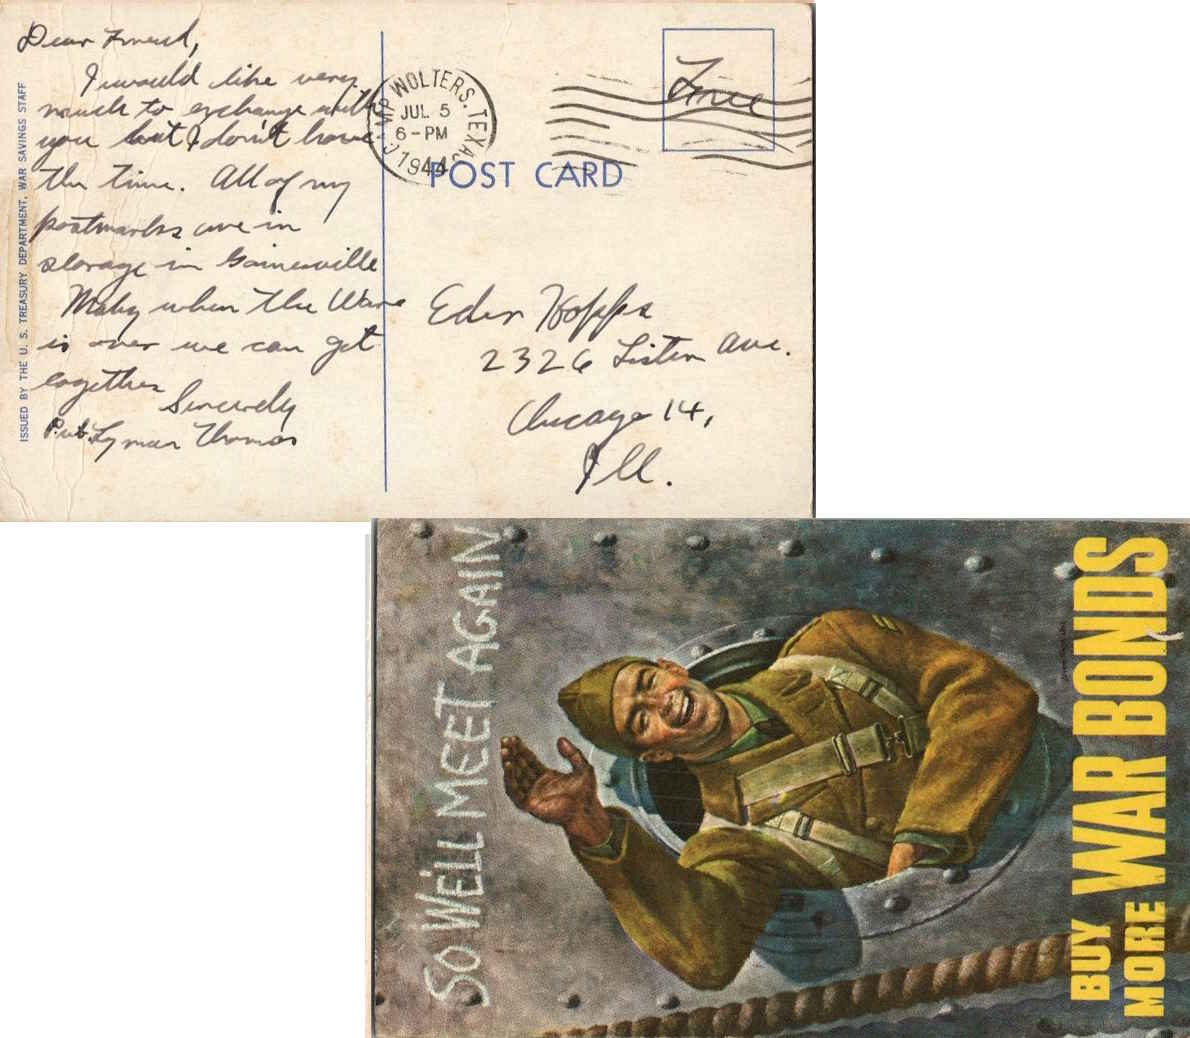 Dear Friend,
I would like very
much to exchange with
you but I don't have
the time. All of my
postmarks are in
storage in Gainesville
Maby when the War
is over we can get
together
Sincerely
Pvt. Lyman Thomas
ISSUED BY THE U. S. TREASURY DEPARTMENT, WAR SAVINGS STAFF
CAMP WOLTERS, TEXAS
JUL 5
6-PM
1944
Free
POST CARD
Hopps
2326 Ave.
Chicago 14,
Ill.
SO WE'LL MEET AGAIN
BUY WAR BONDS
MORE